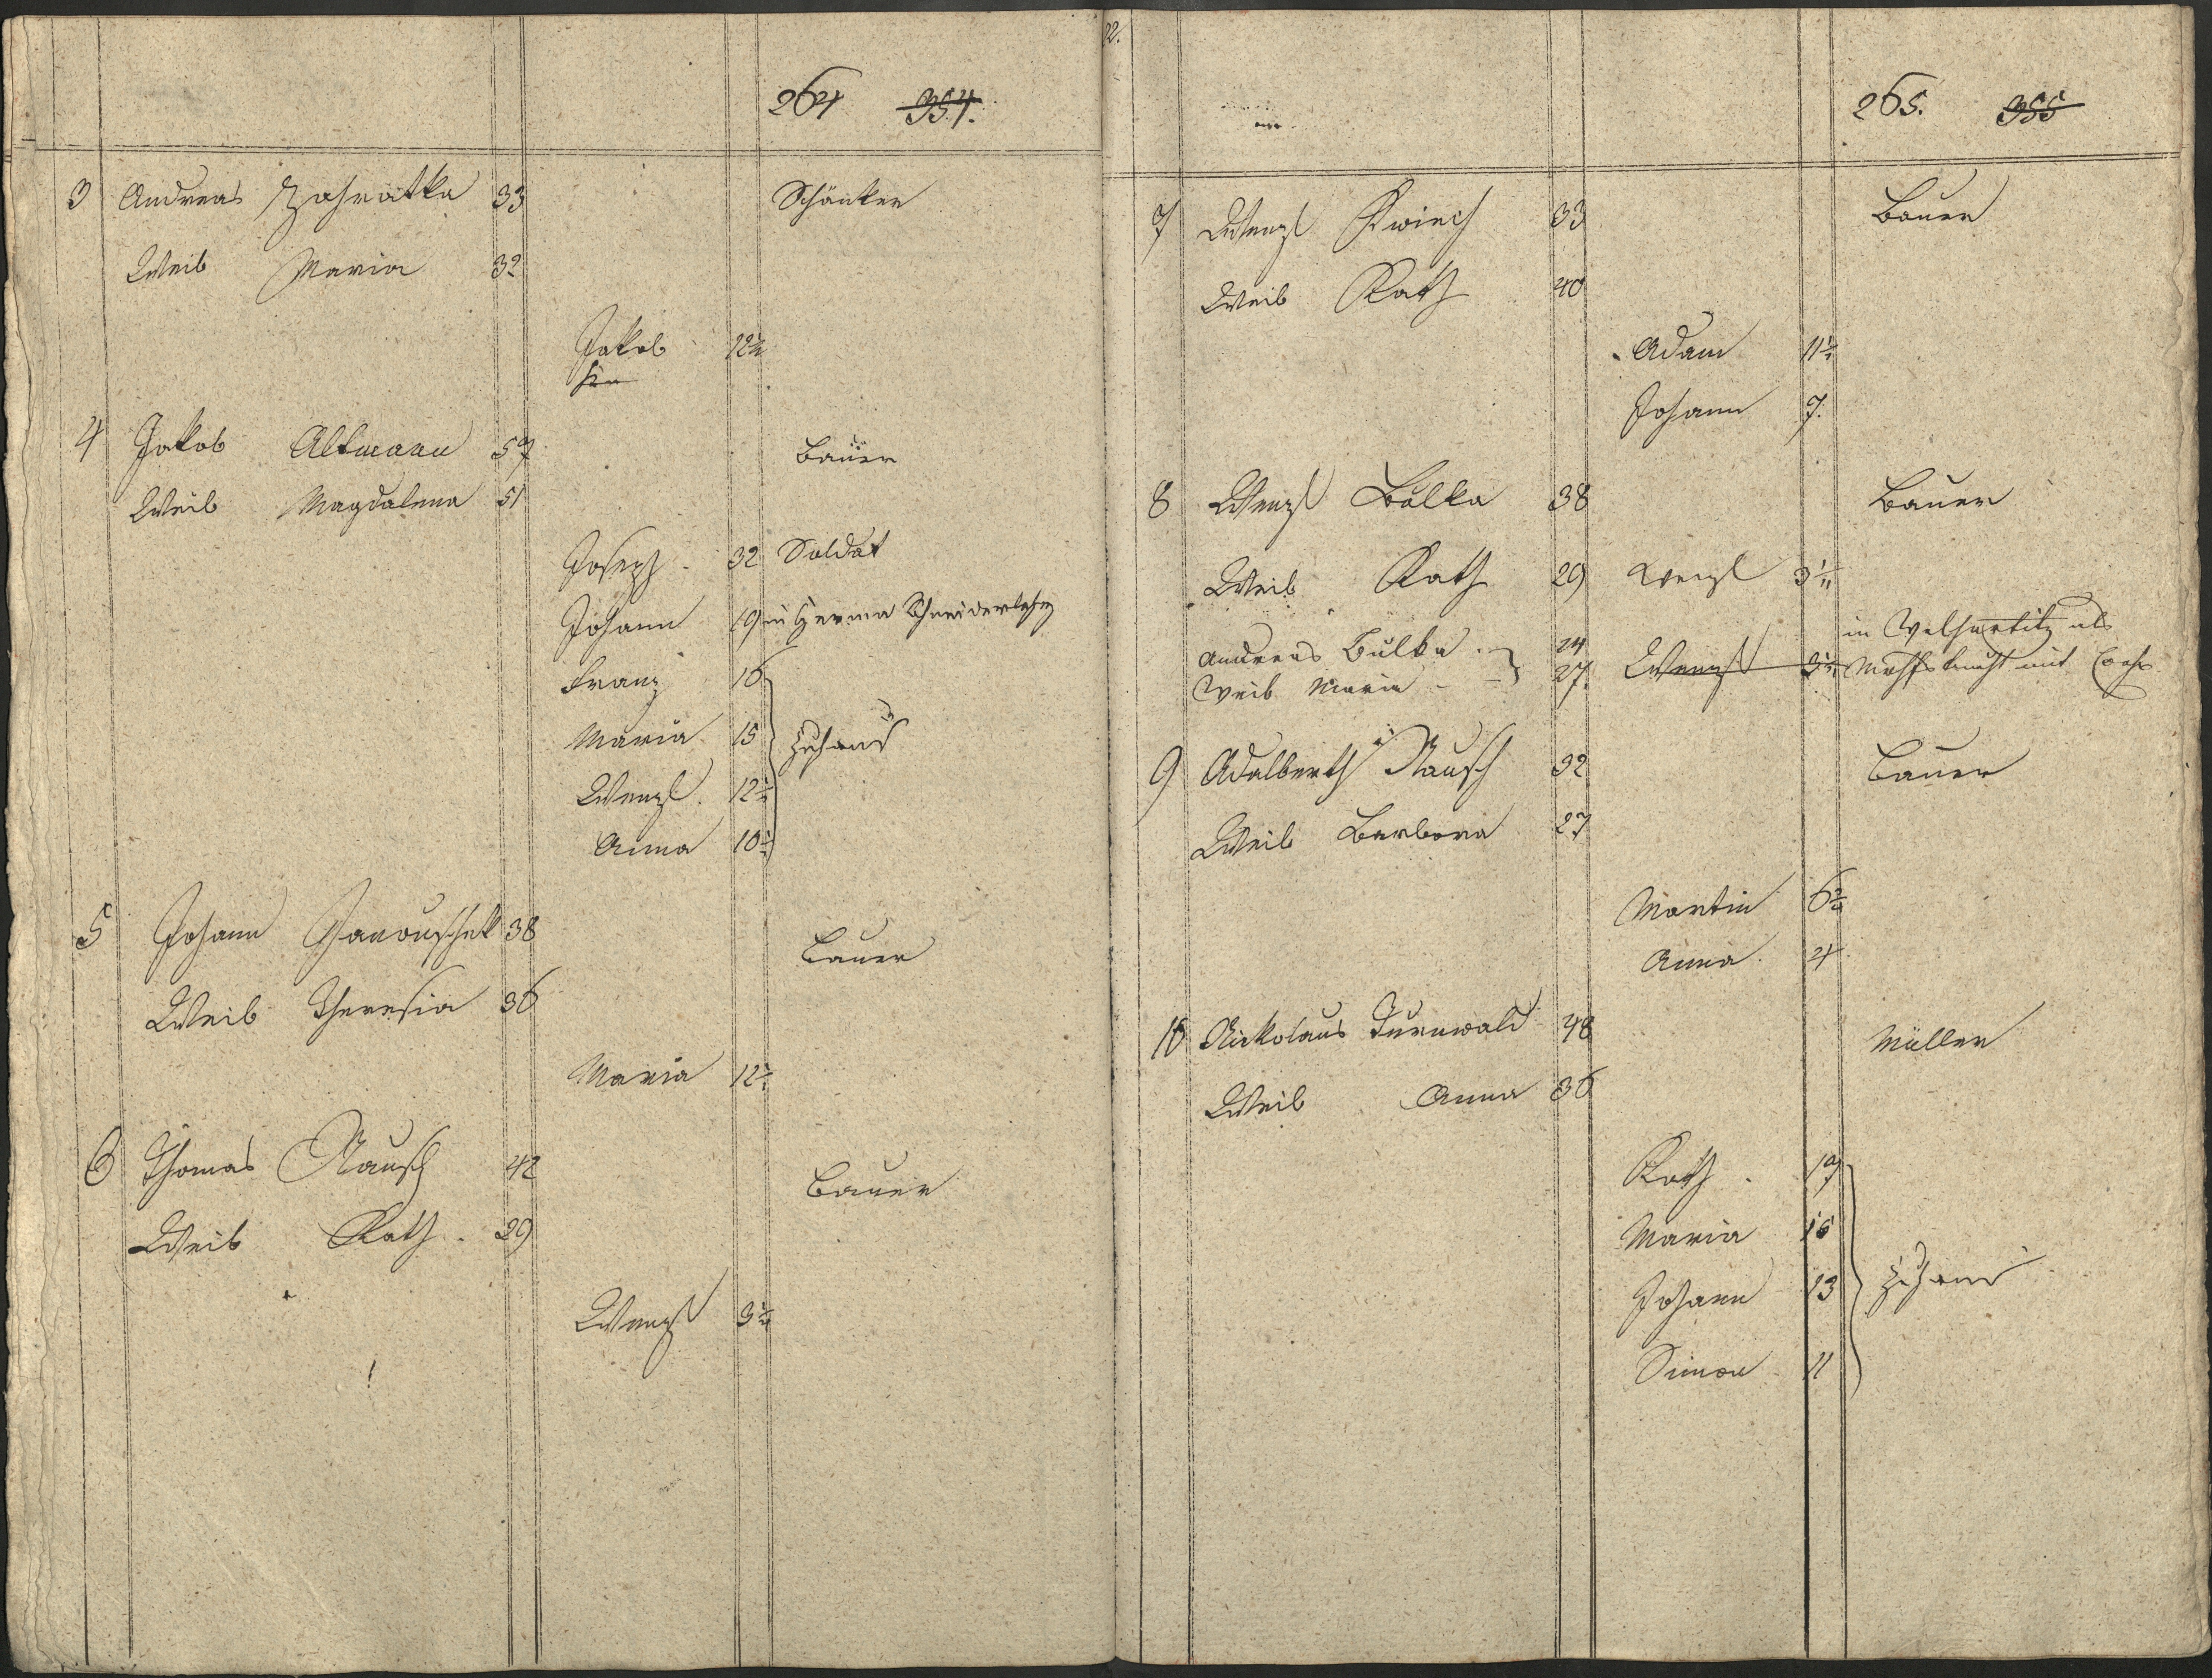 264 354.
3 Andreas Zahratka 33 Schänker
Weib Maria 32
Jakob 12½
4 Jakob Altmann 57 Bauer
Weib Magdalena 51
Joseph 32 Soldat
Johann 19 in Herrna Schneiderlehrg
Franz 16
Maria 15 zuhaus
Wenzl 12½
Anna 10½
5 Johann Janouschek 38 Bauer
Weib Theresia 36
Maria 12½
6 Thomas Rausch 42 Bauer
Weib Kath. 29
Wenzl 3½
265. 355
7 Wenzl Kwiech 33 Bauer
Weib Kath 40
Adam 11½
Johann 7.
8 Wenzl Bulka 38 Bauer
Weib Kath 29 Wenzl
in Welhartitz als
Andreas Bulka 24
Weib Maria 27. Wenzl mit
9 Adalberth Rausch 32 Bauer
Weib Barbora 27
Martin
Anna 4
10 Nickolaus Turnwald 48 Müller
Weib Anna 36
Kath. 17
Maria 15
Johann 13 zuhaus
Simon 11